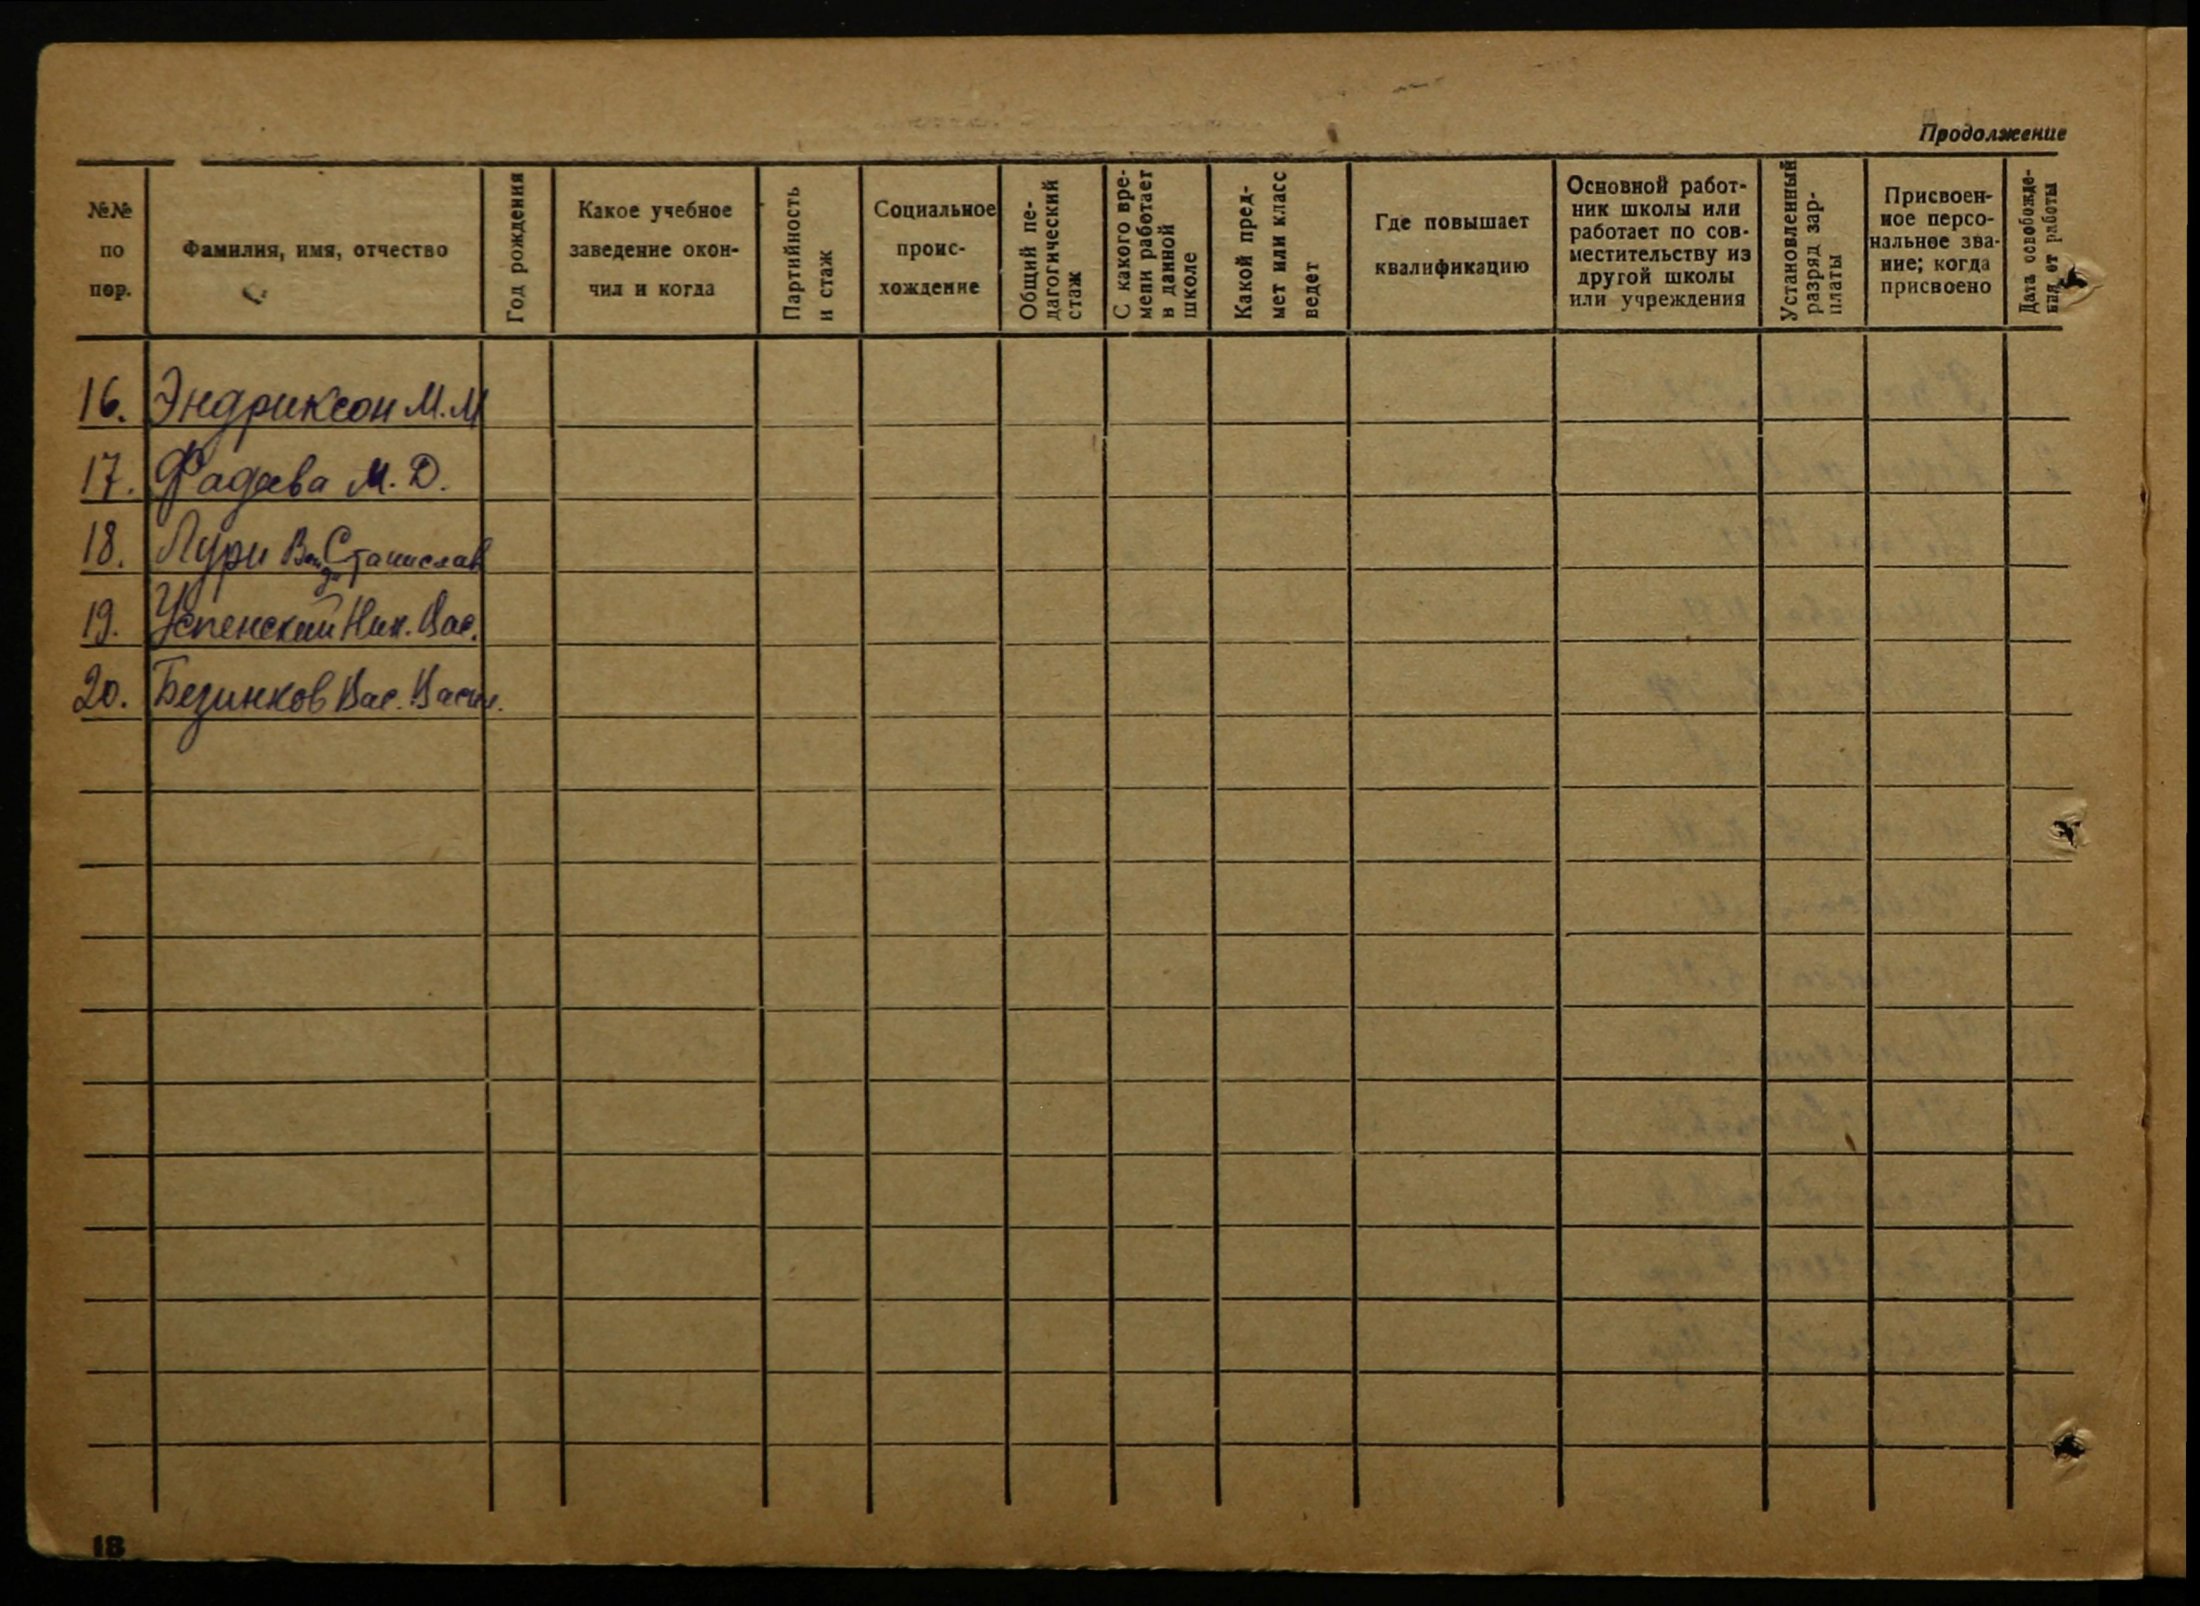 Продолжение
№№ по пор.
Фамилия, имя, отчество
Год рождения
Какое учебное заведение окон-
чил и когда
Партийность и стаж
Социальное проис-
хождение
Общий пе-
дагогический стаж
С какого вре-
мени работает в данной школе
Какой пред-
мет или класс ведет
Где повышает квалификацию
Основной работ-
ник школы или работает по сов-
местительству из другой школы или учреждения
Установленный разряд зар-
платы
Присвоен-
ное персо-
нальное зва-
ние; когда присвоено
Дата освобожде-
ния от работы
16. Эндриксон М.М
17. Фадеева М. Д.
18. Лури Ванда Станислав
19. Успенский Ник. Вас.
20. Безинков Вас. Васил.
18